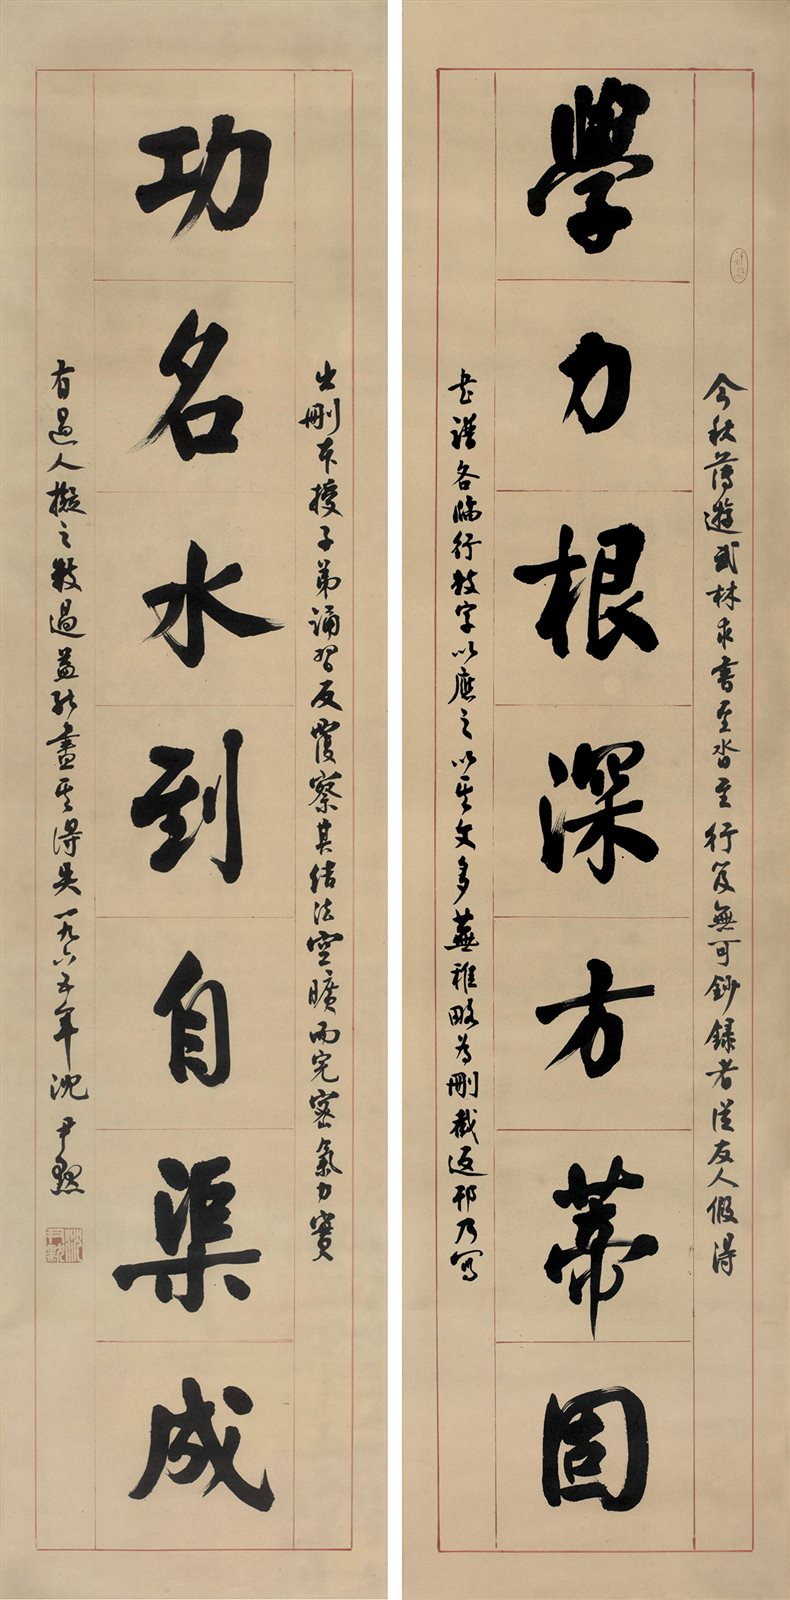 今秋薄遊武林求書至沓至行笈無可鈔錄者從友人假得
學力根深方蒂固
書譜各臨行數字以應之以其文多蕪雜略為刪截返邗乃寫
出刪本授子弟誦習反覆察其結法空曠而完密氣力實
功名水到自渠成
有過人擬之數過益能盡其得失一九六五年沈尹默